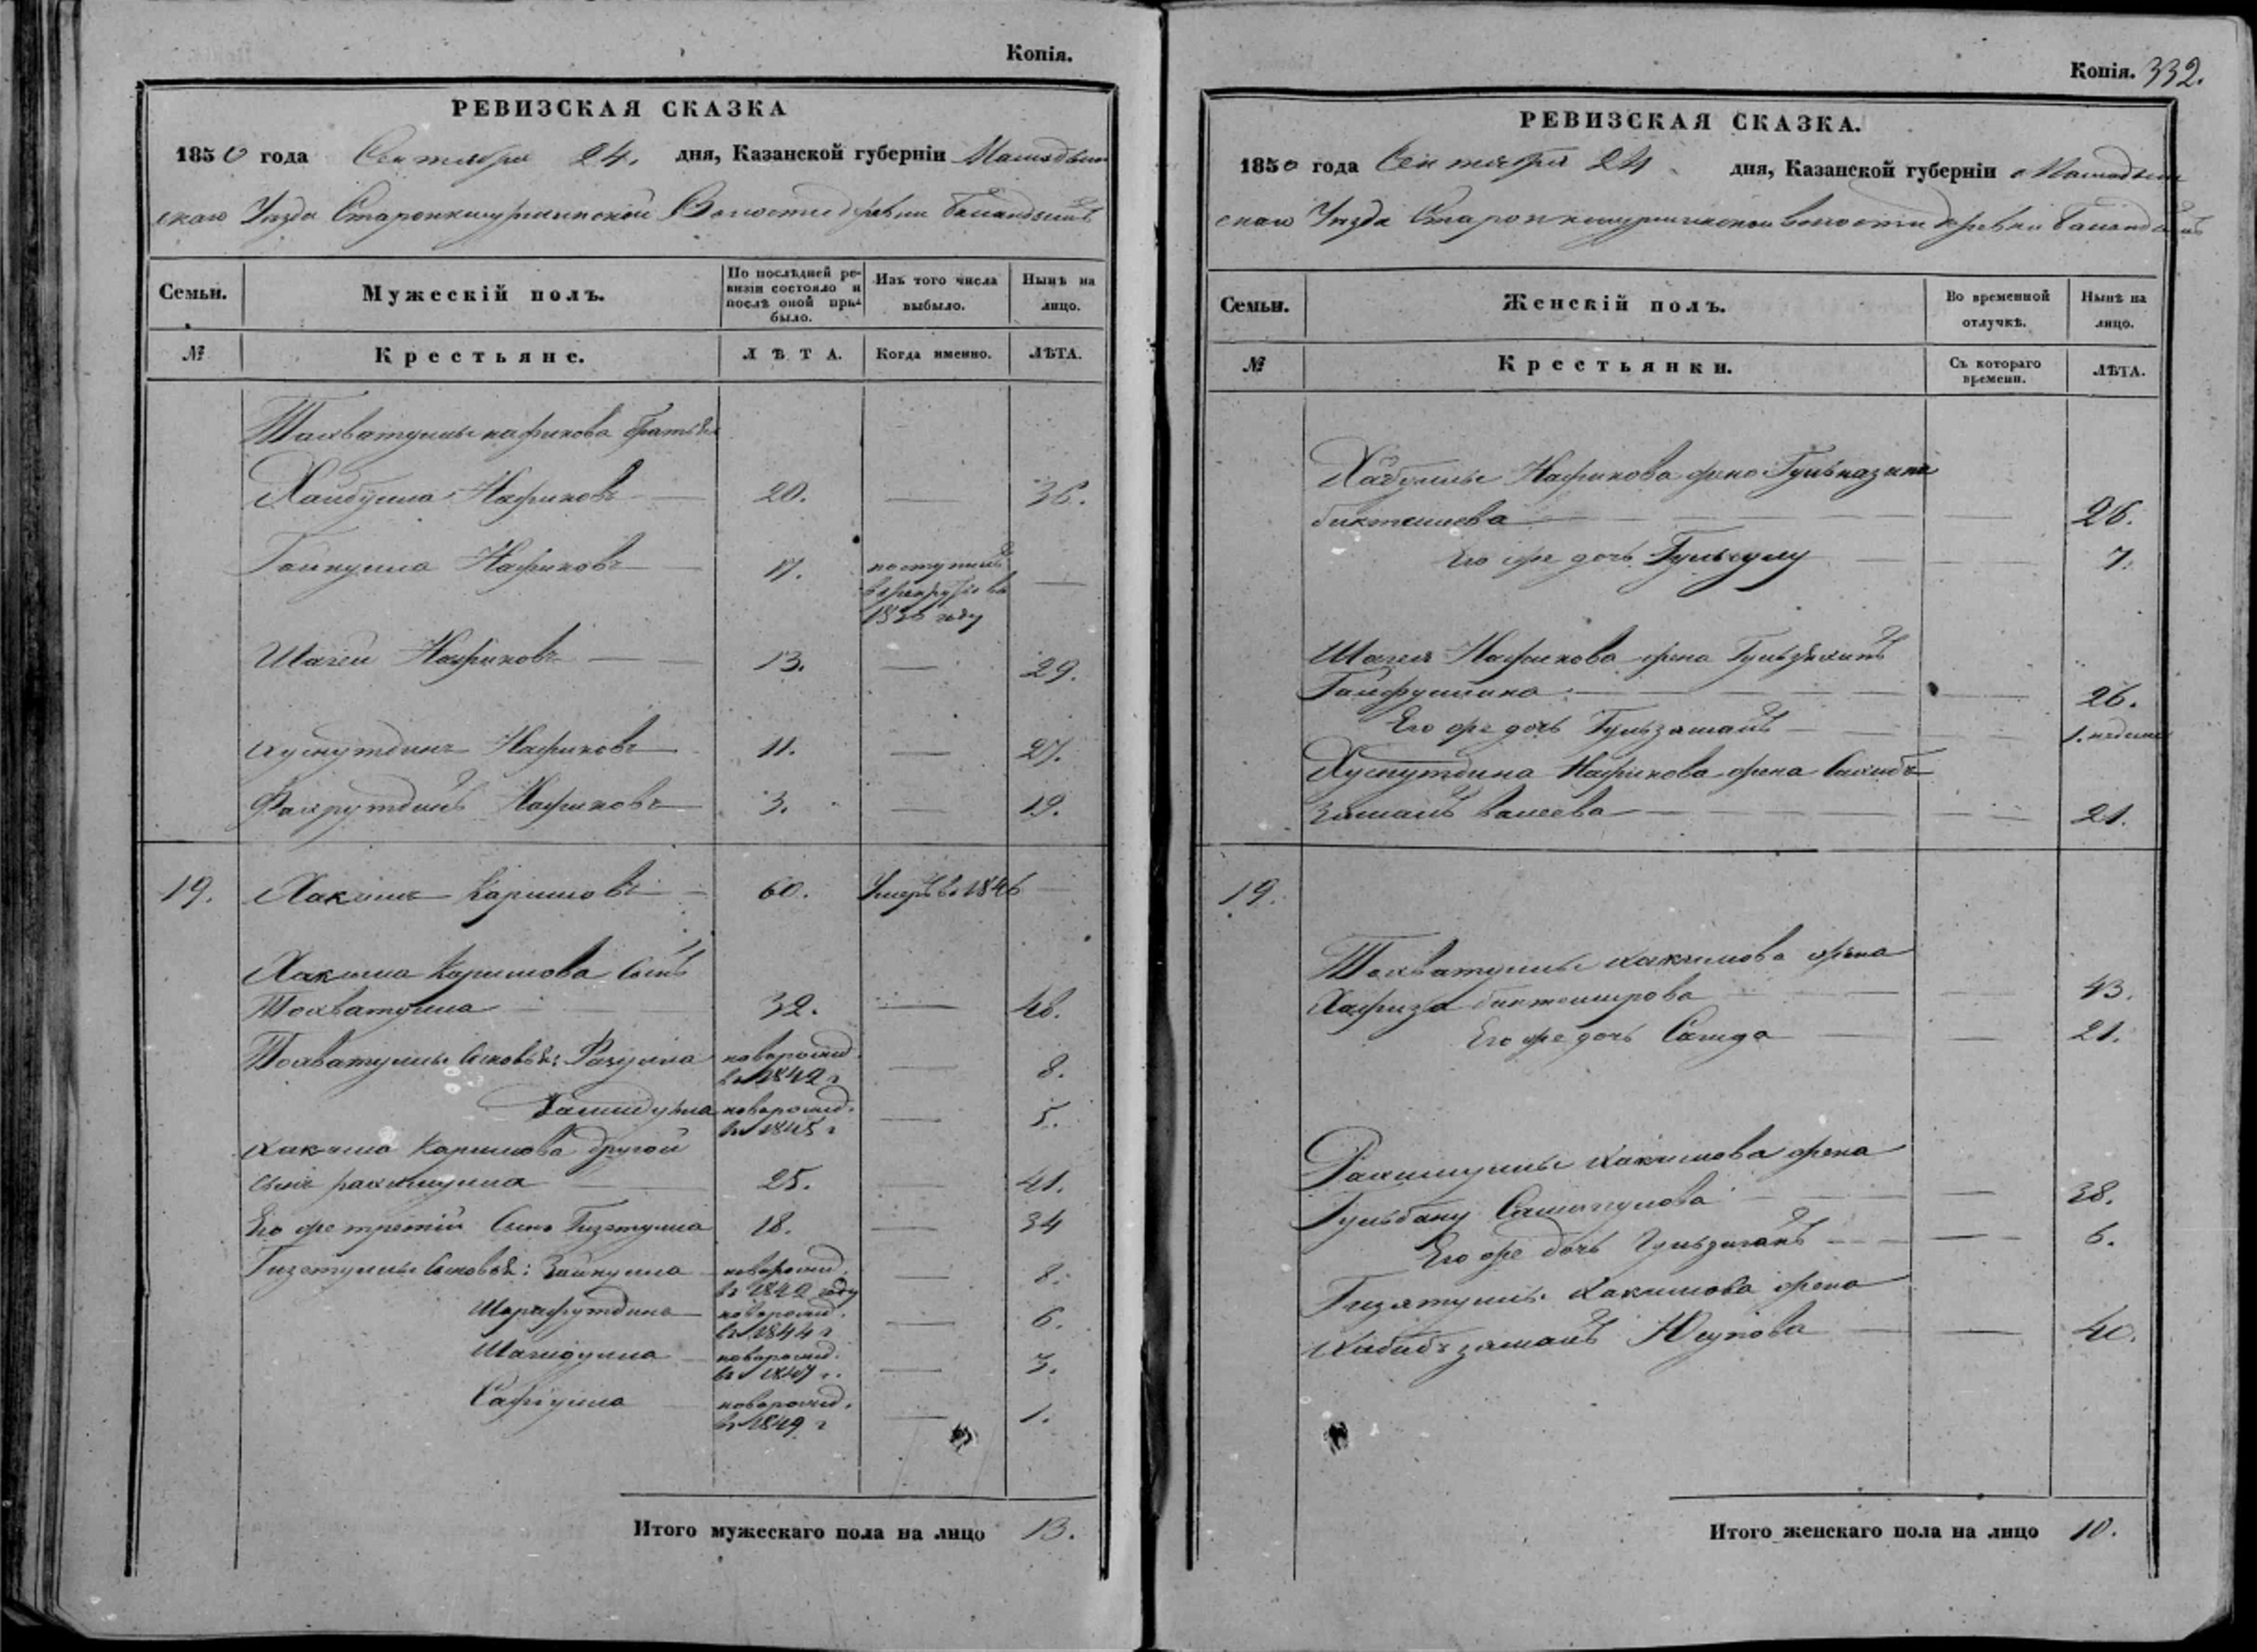 Копія.
РЕВИЗСКАЯ СКАЗКА
1850 года Сентября 24. дня, Казанской губерніи Мамадыш
скаго Уезда Волости деревни
Семьи.
Мужескій полъ.
По послѣдней ре-
визіи состояло и
послѣ оной при-
было.
Изъ того числа
выбыло.
Нынѣ на
лицо.
№
Крестьяне.
ЛѢТА.
Когда именно.
ЛѢТА.
Тахватуллы Нафикова братья
Хайбулла Нафиковъ 20. — 36.
Нафиковъ 17. поступилъ
в рекруты въ
1836 году —
Шагей Нафиковъ 13. — 29.
Хуснутдинъ Нафиковъ 11. — 27.
Фахрутдинъ Нафиковъ 3. — 19.
19. Хакимъ Каримовъ 60. Умеръ в 1846 —
Хакима Каримова сынъ
Тохватулла 32. — 48.
Тохватуллы сыновья: новорожд.
в 1842 г — 8.
новорожд.
в 1845 г — 5.
Хакима Каримова другой
сынъ рахимулла 25. — 41.
Его же третій сынъ Гизетулла 18. — 34
Гизетуллы сыновья: Зайнулла новорожд.
в 1842 году — 8.
Шарафутдинъ новорожд.
в 1844 г — 6.
новорожд.
в 1847 г. — 3.
Сафіулла новорожд.
в 1849 г — 1.
Итого мужескаго пола на лицо 13.
Копія. 332.
РЕВИЗСКАЯ СКАЗКА.
1850 года Сентября 24 дня, Казанской губерніи Мамадыш
скаго Уезда волости деревни
Семьи.
Женскій полъ.
Во временной
отлучкѣ.
Нынѣ на
лицо.
№
Крестьянки.
Съ котораго
времени.
ЛѢТА.
Хабуллы Нафикова жена
биктешева — 26.
Его же дочь Гульсулу — 7.
Шагея Нафикова жена
Гайфуллина — 26.
Его же дочь Гульзаманъ — 1. недели
Хуснутдина Нафикова жена Сахибъ
заманъ Валеева — 21.
19.
Тохватуллы Хакимова жена
Хафиза биктемирова — 43.
Его же дочь Саида — 21.
Рахимуллы Хакимова жена
Гульбану — 38.
Его же дочь — 6.
Гизятуллы Хакимова жена
Хабибъ заманъ Юсупова — 40.
Итого женскаго пола на лицо 10.